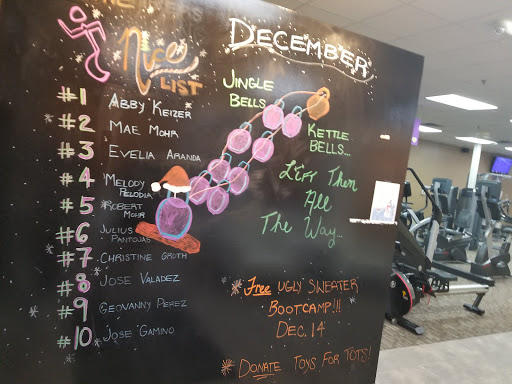 Nice
LIST
#1 ABBY KEIZER
#2 MAE MOHR
#3 EVELIA ARANDA
#4 MELODY
PELODIA
#5 ROBERT
MOHR
#6 JULIUS
PANTOJAS
#7 CHRISTINE GROTH
#8 JOSE VALADEZ
#9 GEOVANNY PEREZ
#10 JOSE GAMINO
DECEMBER
JINGLE
BELLS
KETTLE
BELLS...
LIFT THEM
All
THE WAY...
* Free UGLY SWEATER
BOOTCAMP!!!
DEC. 14
* DONATE TOYS FOR TOTS!